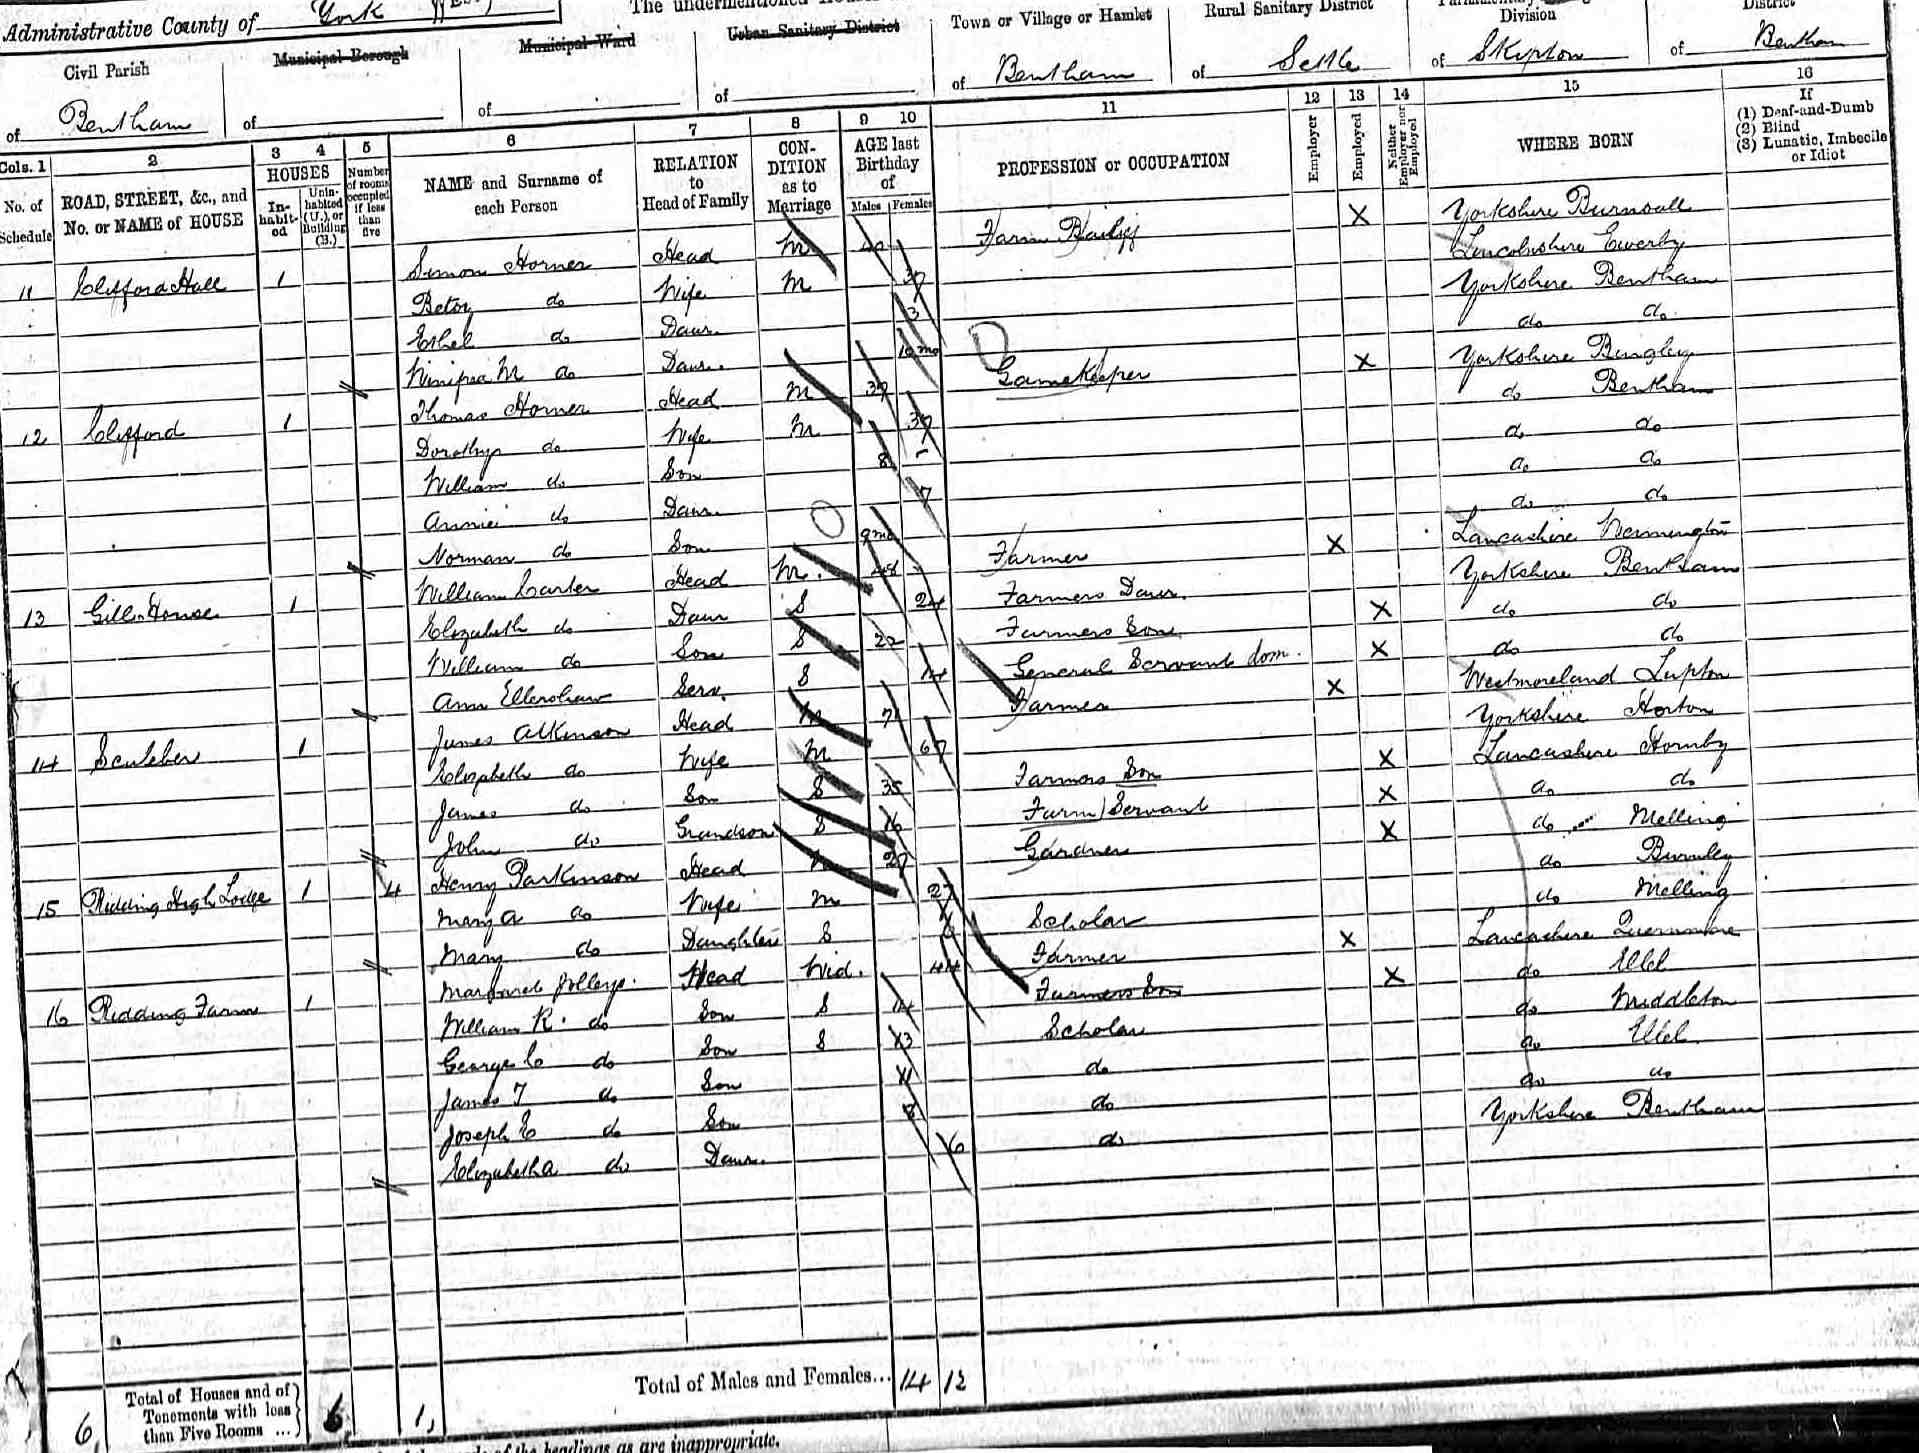 Administrative County of York
The undermentioned Houses
Civil Parish
of Bentham
Municipal Borough
of
Municipal Ward
of
Urban Sanitary District
of
Town or Village or Hamlet
of Bentham
Rural Sanitary District
of Settle
Division
of Skipton
District
of Bentham
Cols. 1 2 3 4 5 6 7 8 9 10 11 12 13 14 15 16
No. of Schedule
ROAD, STREET, &c., and No. or NAME of HOUSE
HOUSES
In-habit-ed
Unin-habited (U.), or Building (B.)
Number of rooms occupied if less than five
NAME and Surname of each Person
RELATION to Head of Family
CON-DITION as to Marriage
AGE last Birthday of
Males Females
PROFESSION or OCCUPATION
Employer
Employed
Neither Employer nor Employed
WHERE BORN
If
(1) Deaf-and-Dumb
(2) Blind
(3) Lunatic, Imbecile or Idiot
11 Clifford Hall 1 Simon Horner Head M Farm Bailiff X Yorkshire Burnsall
Betsy do Wife M 37 Lincolnshire Ewerby
Ethel do Daur. 3 Yorkshire Bentham
M do Daur. 10 mo do do
12 Clifford 1 Thomas Horner Head M 37 Gamekeeper X Yorkshire Bingley
Dorothy do Wife M 37 do Bentham
William do Son 8 do do
Annie do Daur. 7 do do
Norman do Son 9 mo do do
13 Gill House 1 William Carter Head 48 Farmer X Lancashire Wennington
Elizabeth do Daur S 24 Farmers Daur. Yorkshire Bentham
William do Son S 22 Farmers Son X do do
Ann Ellershaw Serv. S 14 General Servant dom. X do do
14 1 James Atkinson Head M 71 Farmer X Westmoreland Lupton
Elizabeth do Wife M 67 Yorkshire Horton
James do Son S 35 Farmers Son X Lancashire Hornby
John do Grandson S 16 Farm Servant X do do
15 Ridding High Lodge 1 4 Henry Parkinson Head M 27 Gardner X do Melling
Mary A do Wife M 27 do Burnley
Mary do Daughter S Scholar do Melling
16 Ridding Farm 1 Margaret Head Wid. 44 Farmer X Lancashire Quernmore
William R. do Son S 14 Farmers Son X do Ellel
George C do Son S 13 Scholar do Middleton
James T do Son 11 do do Ellel
Joseph E do Son 8 do do do
Elizabeth A do Daur. 6 do Yorkshire Bentham
6 Total of Houses and of Tenements with less than Five Rooms ... 6 1
Total of Males and Females... 14 12
of the headings as are inappropriate.